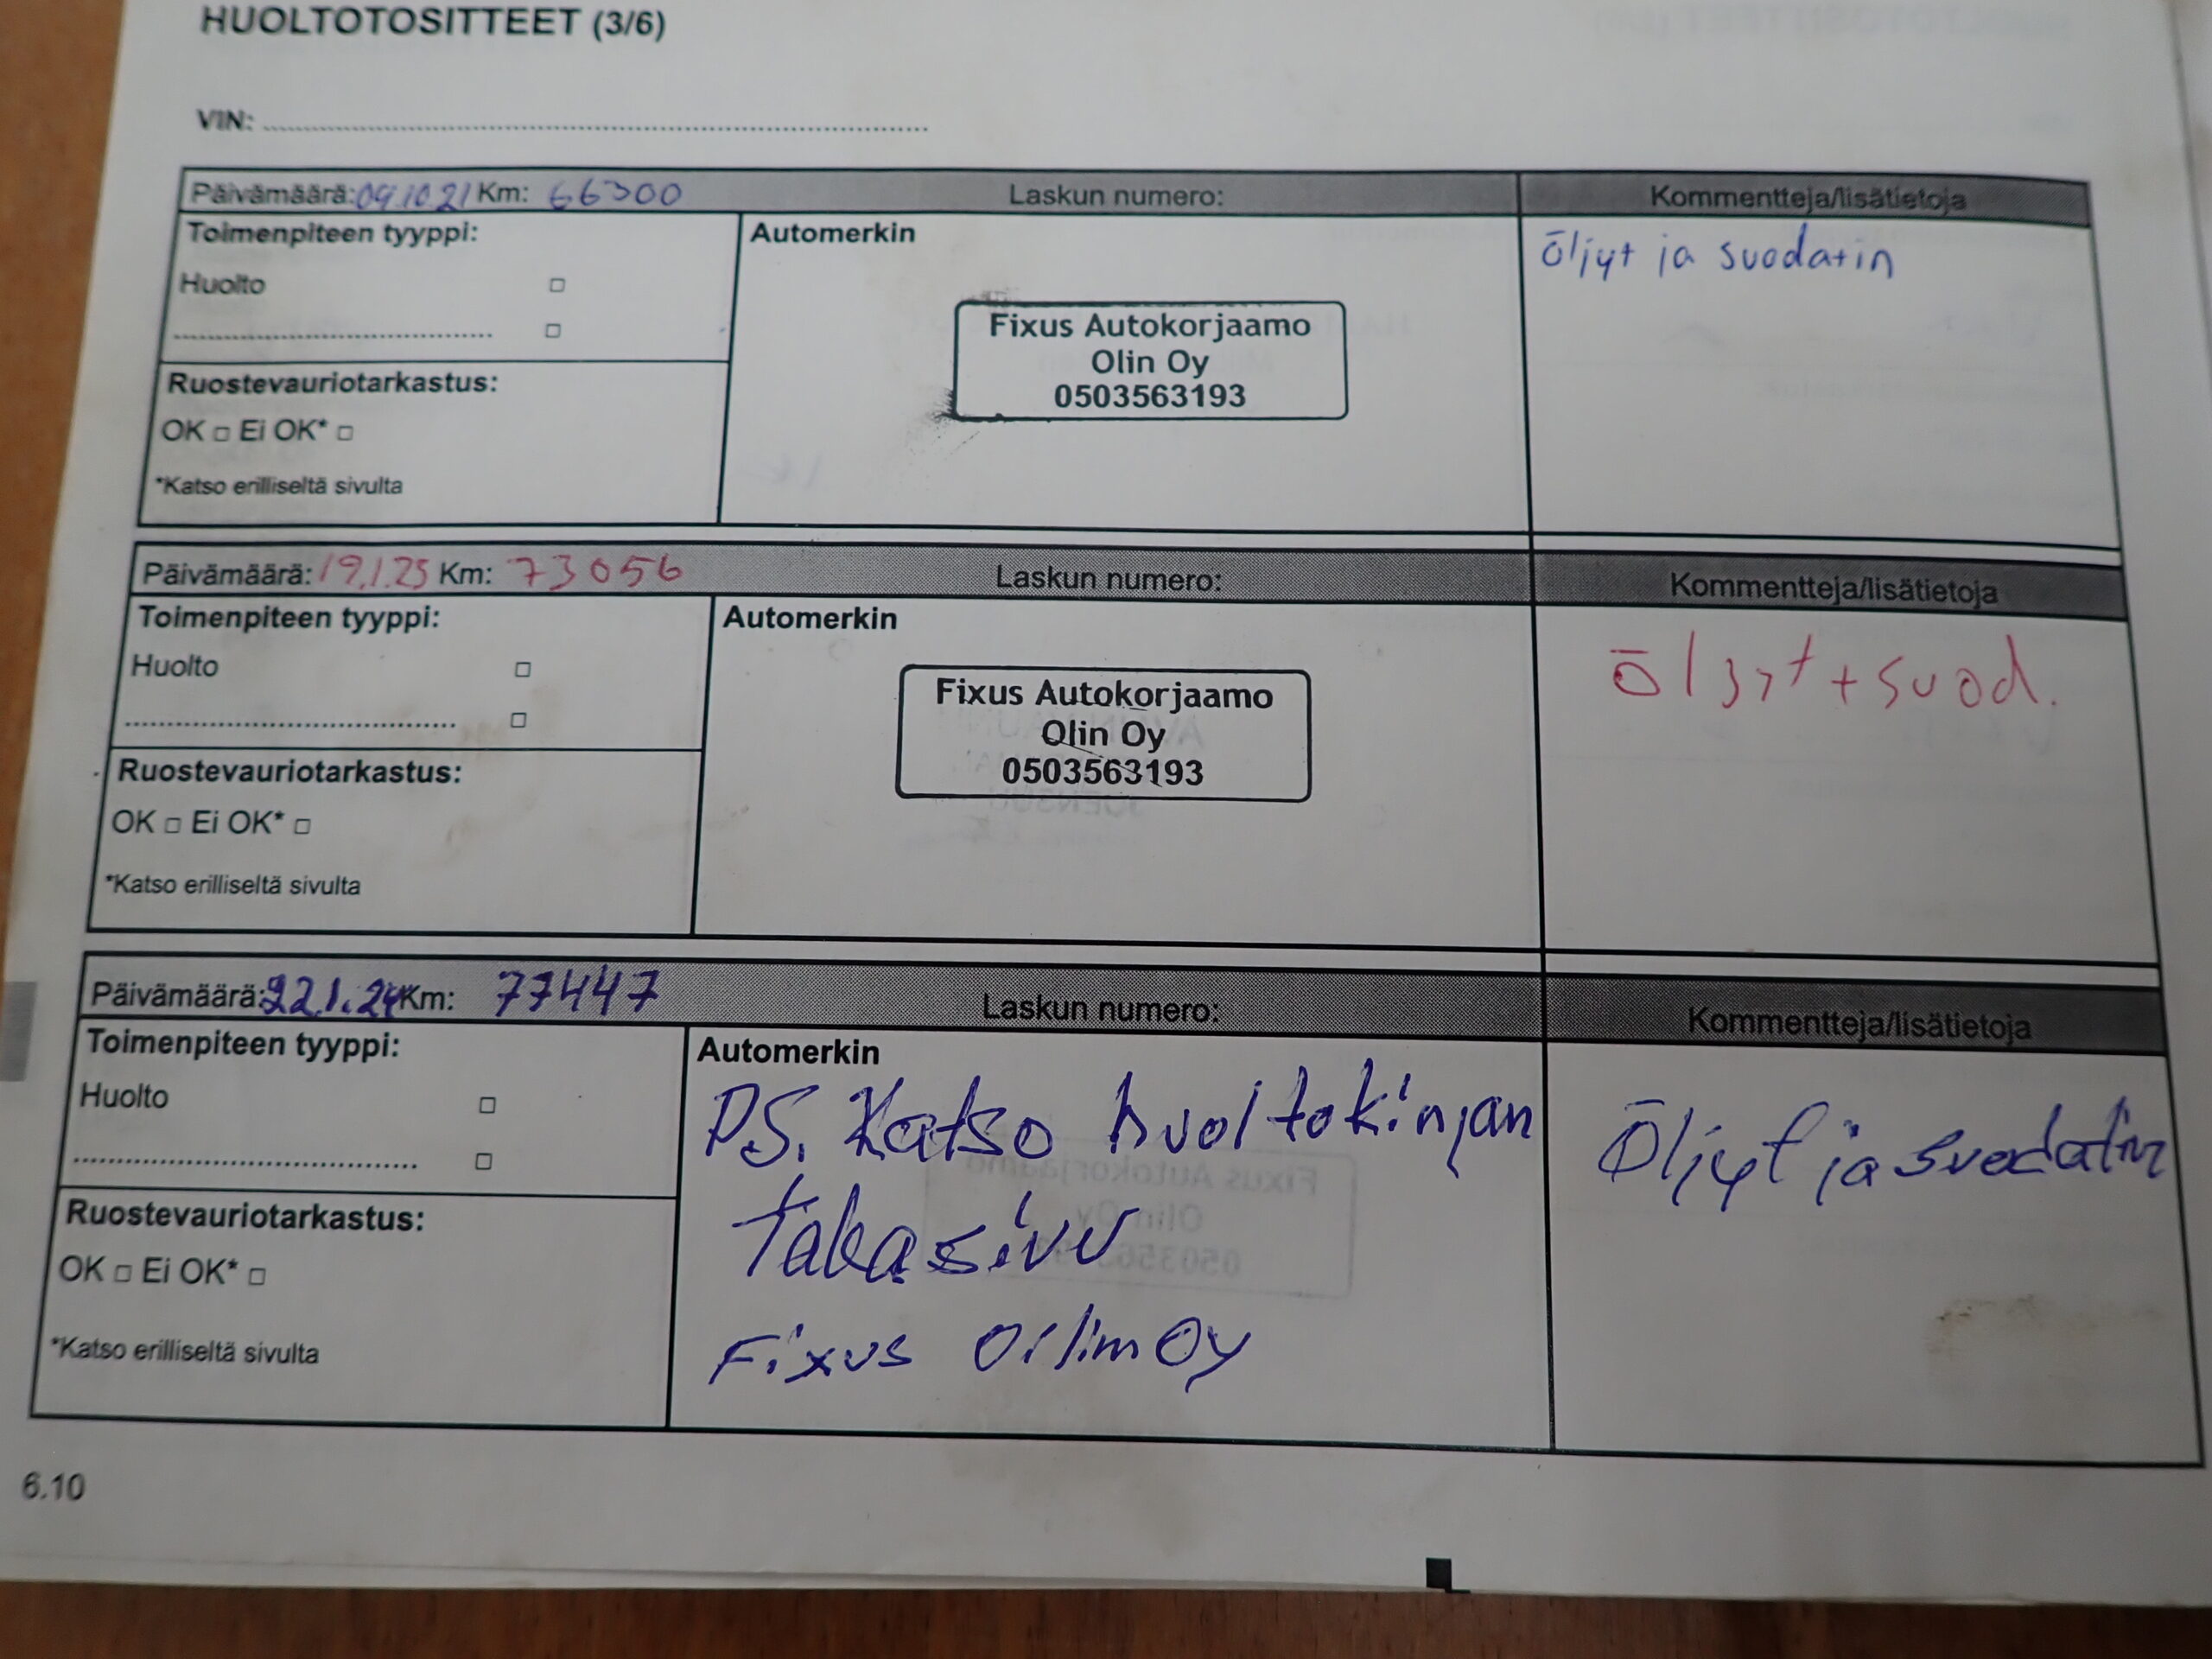 HUOLTOTOSITTEET (3/6)
VIN:
Päivämäärä: 09.10.21 Km: 66300 Laskun numero: Kommentteja/lisätietoja
Toimenpiteen tyyppi: Automerkin öljyt ja suodatin
Huolto
Fixus Autokorjaamo
Olin Oy
0503563193
Ruostevauriotarkastus:
OK □ Ei OK* □
*Katso erilliseltä sivulta
Päivämäärä: 19.1.23 Km: 73056 Laskun numero: Kommentteja/lisätietoja
Toimenpiteen tyyppi: Automerkin öljyt + suod.
Huolto
Fixus Autokorjaamo
Olin Oy
0503563193
Ruostevauriotarkastus:
OK □ Ei OK* □
*Katso erilliseltä sivulta
Päivämäärä: 22.1.24 Km: 77447 Laskun numero: Kommentteja/lisätietoja
Toimenpiteen tyyppi: Automerkin
Huolto
PS. Katso huoltokirjan Öljyt ja suodatin
takasivu
Fixus Olim Oy
Ruostevauriotarkastus:
OK □ Ei OK* □
*Katso erilliseltä sivulta
6.10